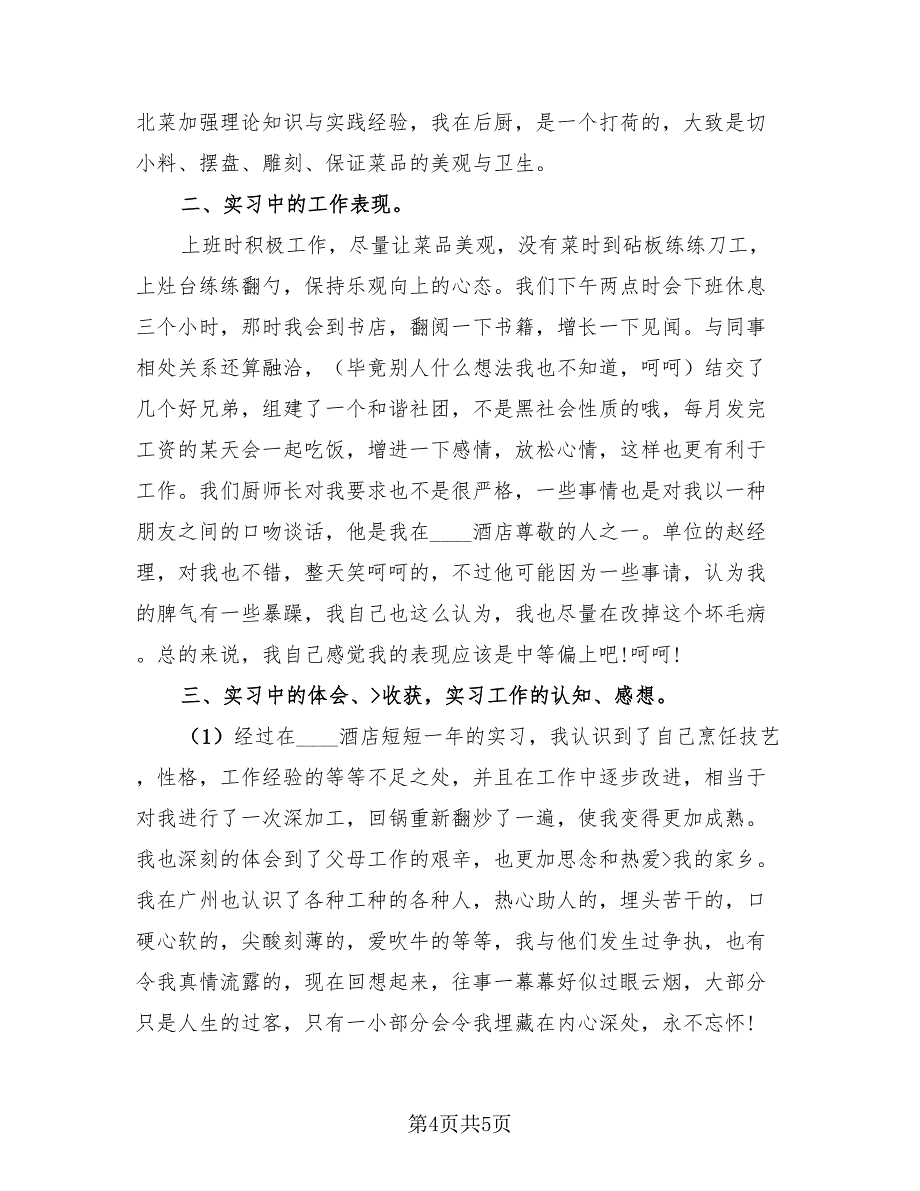 北菜加强理论知识与实践经验，我在后厨，是一个打荷的，大致是切
小料、摆盘、雕刻、保证菜品的美观与卫生。
二、实习中的工作表现。
上班时积极工作，尽量让菜品美观，没有菜时到砧板练练刀工，
上灶台练练翻勺，保持乐观向上的心态。我们下午两点时会下班休息
三个小时，那时我会到书店，翻阅一下书籍，增长一下见闻。与同事
相处关系还算融洽，（毕竟别人什么想法我也不知道，呵呵）结交了
几个好兄弟，组建了一个和谐社团，不是黑社会性质的哦，每月发完
工资的某天会一起吃饭，增进一下感情，放松心情，这样也更有利于
工作。我们厨师长对我要求也不是很严格，一些事情也是对我以一种
朋友之间的口吻谈话，他是我在____酒店尊敬的人之一。单位的赵经
理，对我也不错，整天笑呵呵的，不过他可能因为一些事请，认为我
的脾气有一些暴躁，我自己也这么认为，我也尽量在改掉这个坏毛病
。总的来说，我自己感觉我的表现应该是中等偏上吧!呵呵!
三、实习中的体会、>收获，实习工作的认知、感想。
（1）经过在____酒店短短一年的实习，我认识到了自己烹饪技艺
，性格，工作经验的等等不足之处，并且在工作中逐步改进，相当于
对我进行了一次深加工，回锅重新翻炒了一遍，使我变得更加成熟。
我也深刻的体会到了父母工作的艰辛，也更加思念和热爱>我的家乡。
我在广州也认识了各种工种的各种人，热心助人的，埋头苦干的，口
硬心软的，尖酸刻薄的，爱吹牛的等等，我与他们发生过争执，也有
令我真情流露的，现在回想起来，往事一幕幕好似过眼云烟，大部分
只是人生的过客，只有一小部分会令我埋藏在内心深处，永不忘怀!
第4页共5页